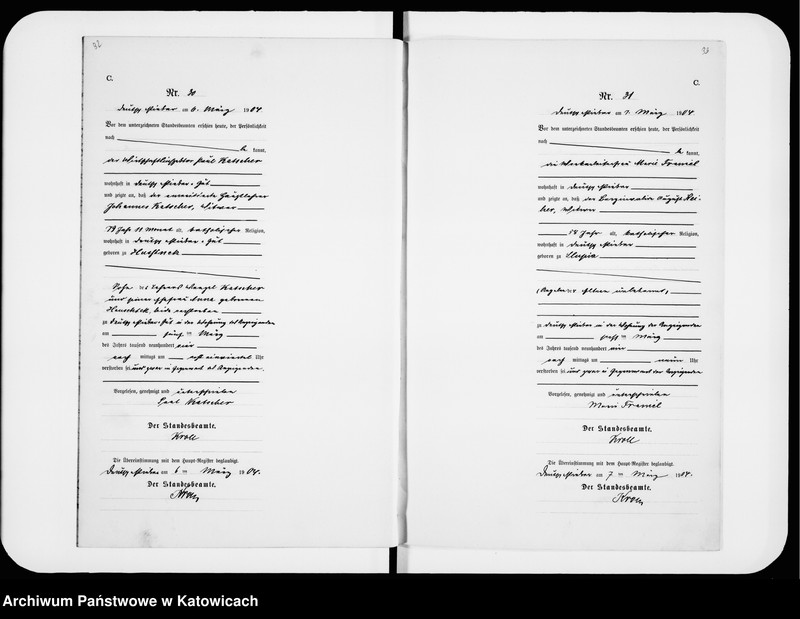 32
C.
Nr. 30
Deutsch Piekar am 6. März 1904
Vor dem unterzeichneten Standesbeamten erschien heute, der Persönlichkeit
nach
kannt,
der Wirtschaftsinspektor Paul Ketscher
wohnhaft in Deutsch Piekar Gut
und zeigte an, daß der
Johannes Ketscher, Witwer
79 Jahr 11 Monat alt, katholischer Religion,
wohnhaft in Deutsch Piekar Gut
geboren zu
Sohn des Lehrers Ketscher
und seiner Ehefrau Anna geborenen
beide verstorben
zu Deutsch Piekar Gut in der Wohnung des Anzeigenden
am fünften März
des Jahres tausend neunhundert vier
nach mittags um Uhr
verstorben sei und zwar in Gegenwart des Anzeigenden.
Vorgelesen, genehmigt und unterschrieben
Paul Ketscher
Der Standesbeamte.
Kroll
Die Übereinstimmung mit dem Haupt-Register beglaubigt.
Deutsch Piekar am 6ten März 1904.
Der Standesbeamte.
Kroll
C.
Nr. 31
Deutsch Piekar am 7. März 1904
Vor dem unterzeichneten Standesbeamten erschien heute, der Persönlichkeit
nach
kannt,
die Marie
wohnhaft in Deutsch Piekar
und zeigte an, daß der Berginvalide August
Witwer
58 Jahr alt, katholischer Religion,
wohnhaft in Deutsch Piekar
geboren zu
(Angaben der Eltern unbekannt)
zu Deutsch Piekar in der Wohnung der Anzeigenden
am sechsten März
des Jahres tausend neunhundert vier
nach mittags um neun Uhr
verstorben sei und zwar in Gegenwart der Anzeigenden
Vorgelesen, genehmigt und unterschrieben
Marie
Der Standesbeamte.
Kroll
Die Übereinstimmung mit dem Haupt-Register beglaubigt.
Deutsch Piekar am 7ten März 1904.
Der Standesbeamte.
Kroll
Archiwum Państwowe w Katowicach